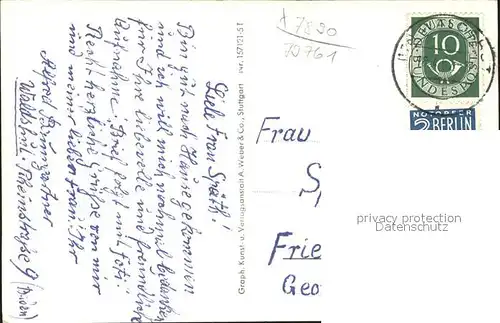 Liebe Frau Späth!
Bin gut nach Hause gekommen
und ich will mich nochmal bedanken
für Ihre liebevolle und freundliche
Aufnahme. Brief folgt mit Foto.
Recht herzliche Grüße von mir
und meiner lieben Frau Ihr
Alfred
Waldshut, Rheinstraße 9
Graph. Kunst- u. Verlagsanstalt A. Weber & Co., Stuttgart
Nr. 15721-51
7890
10761
10
DEUTSCHE BUNDESPOST
NOTOPFER
2 BERLIN
Frau
S
Frie
Geo
privacy protection
Datenschutz